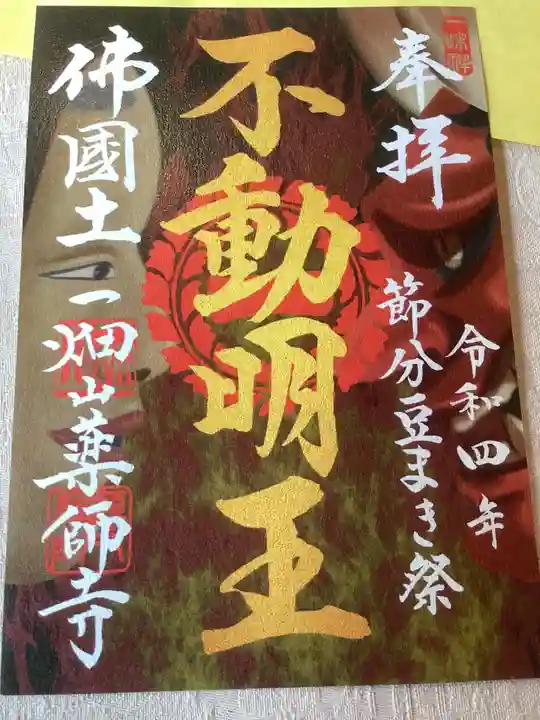 奉拝
令和四年
節分豆まき祭
不動明王
佛國土 一畑山薬師寺